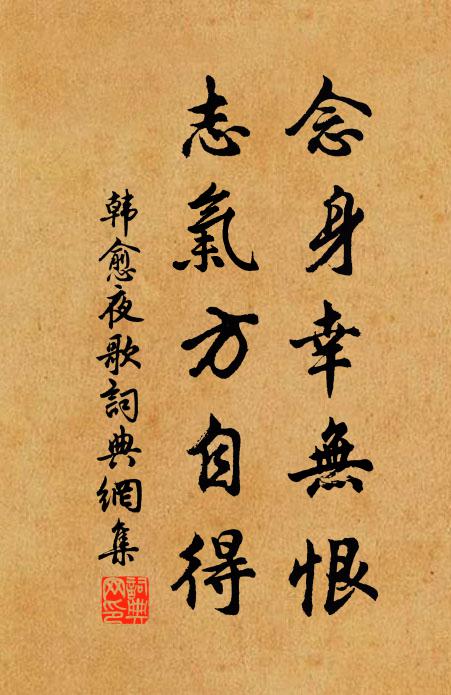 念身幸無恨
志氣方自得
韩愈夜歌詞典網集
詞典网印